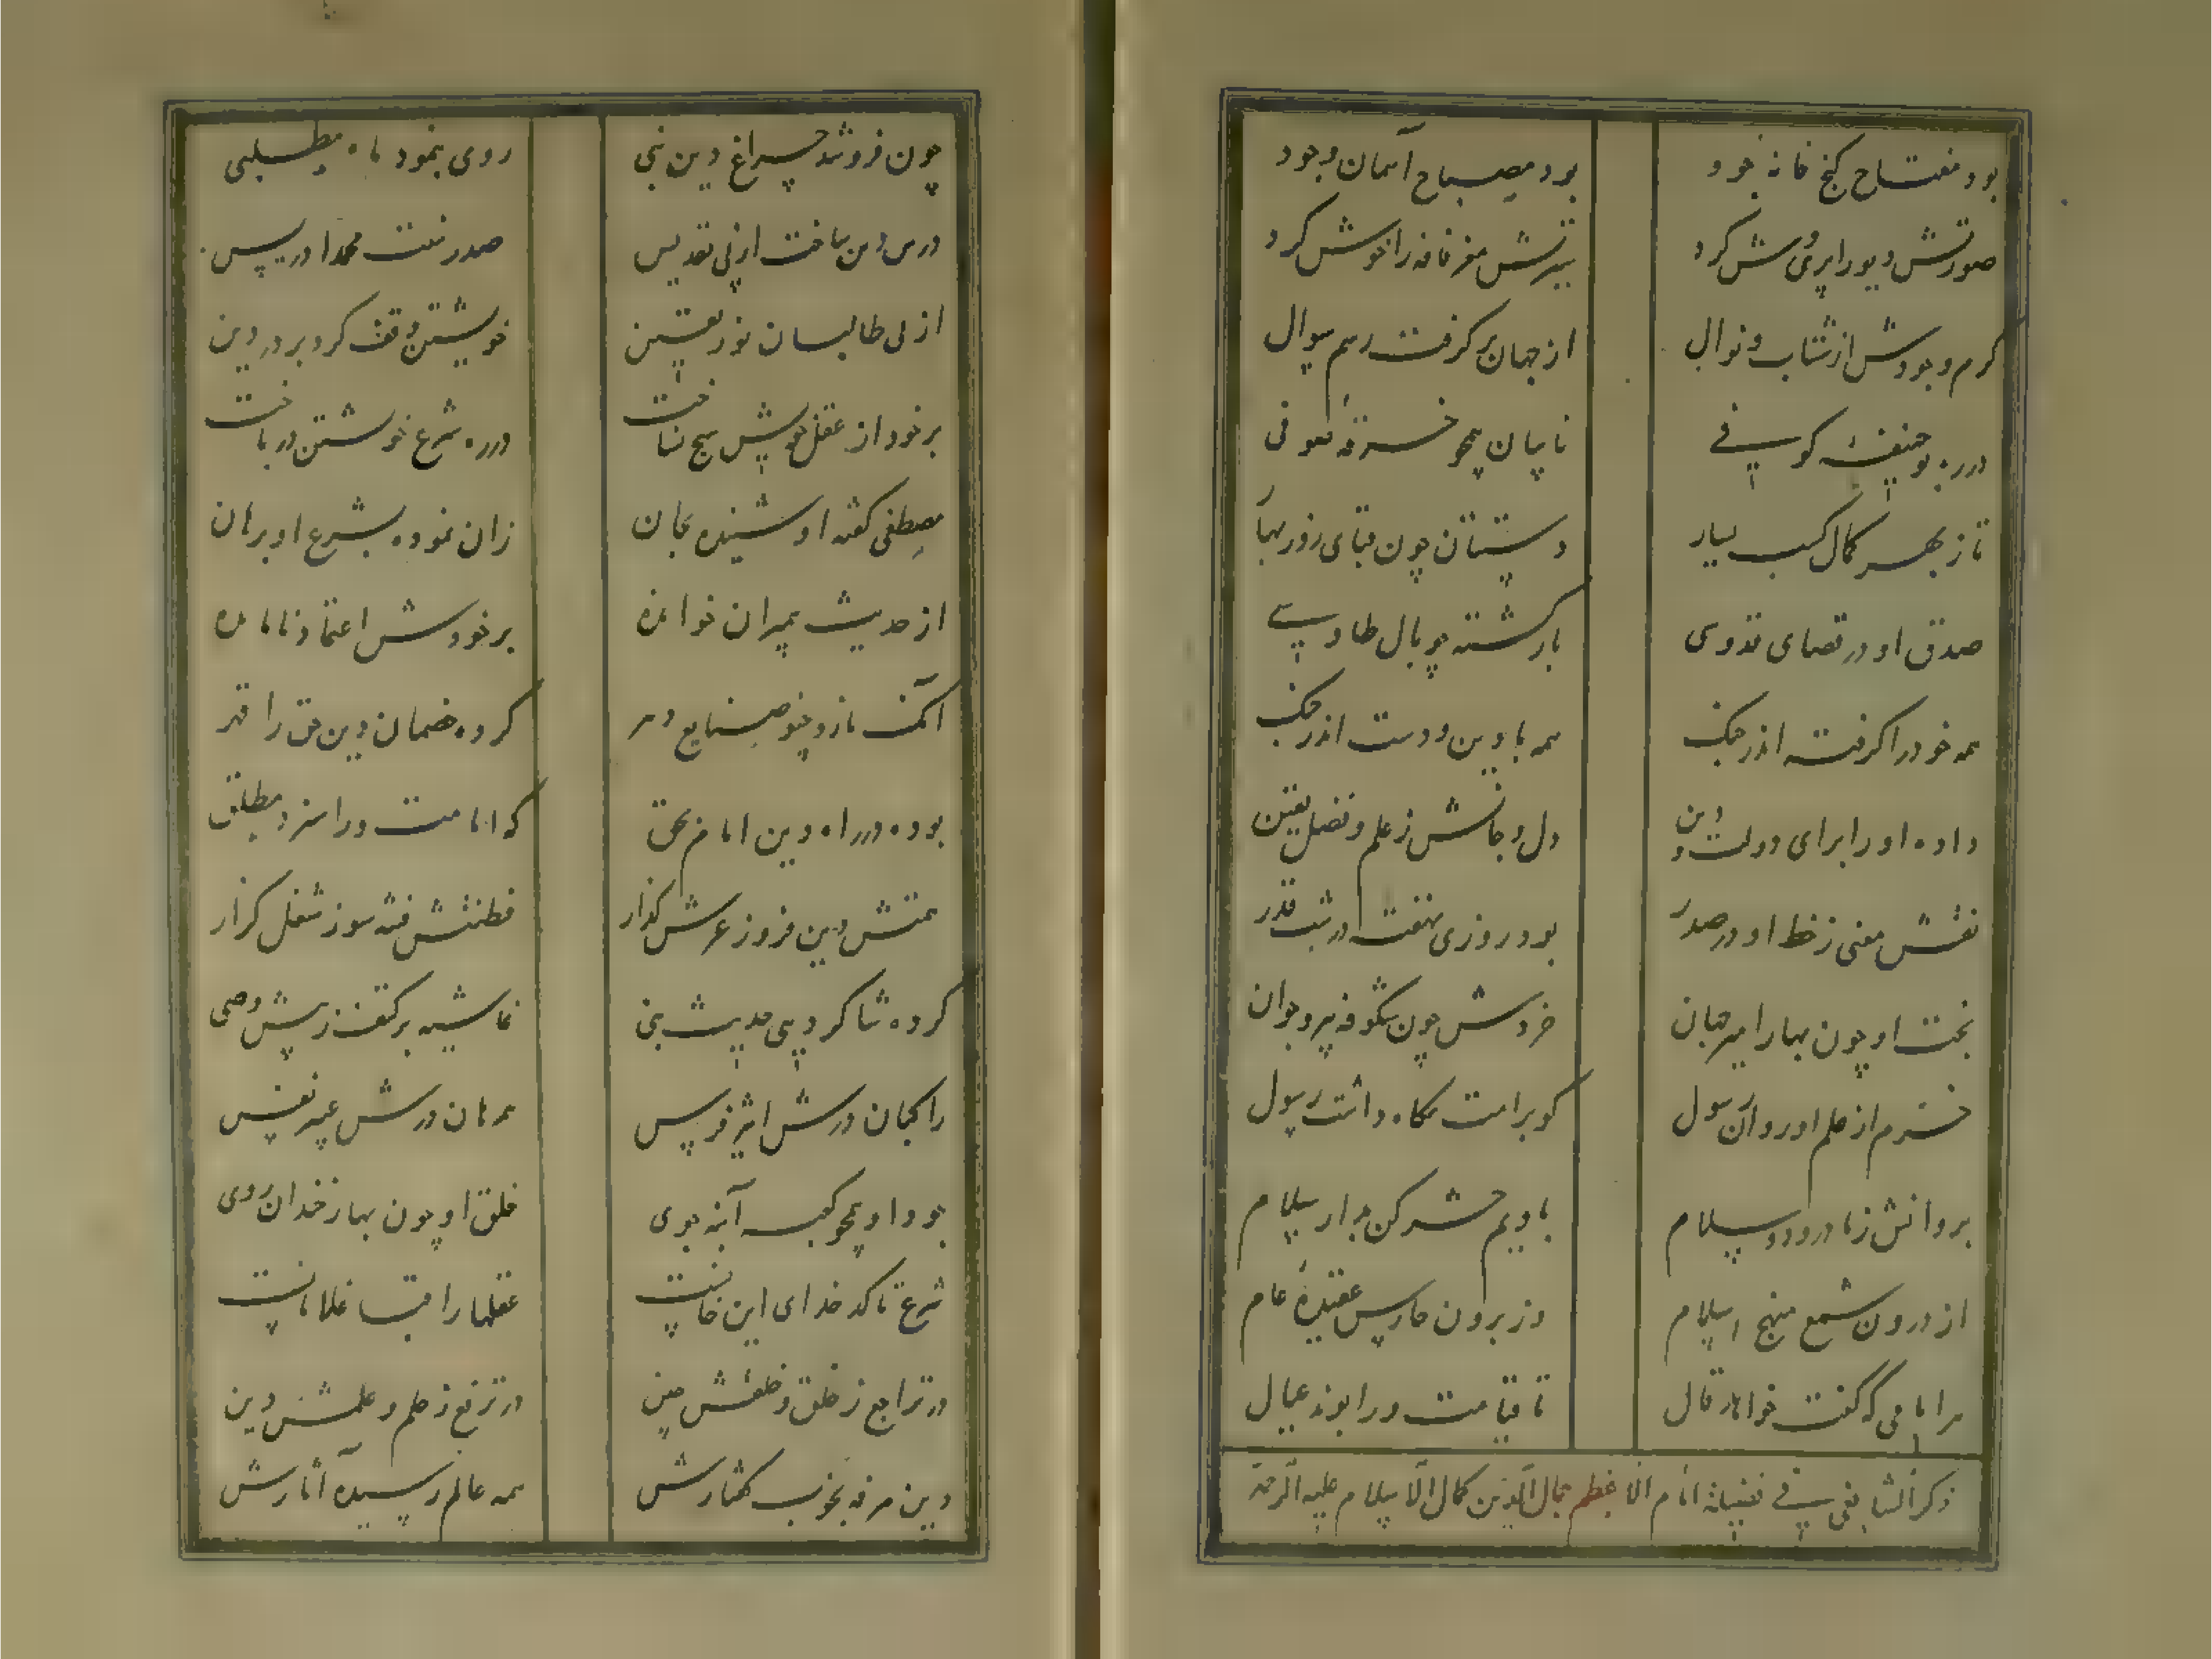 بود مفتاح گنج خانه جود بود مصباح آسمان وجود
صورتش دیو را پری وش کرد سیرتش مغز نافه را خوش کرد
کرم و جودش از شتاب و نوال از جهان برگرفت رسم سوال
در ره بوحنیفه کوفی ناپیان همچو خرقه صوفی
تا ز بهر کمال کسب یسار دستشان چون قبای روز بهار
صدق او در قصای قدوسی باز گشته چو بال طاوسی
همه خود را گرفته اندر جنگ همه با دین و دست اندر جنگ
داده او را برای دولت و دین دل و جانش ز علم و فضل یقین
نقش معنی ز خط او در صدر بود روزی نهفته در شب قدر
بخت او چون بهار امیر جهان خردش چون شکوفه پیر و جوان
خرم از علم او روان رسول کو بر امت نگاه داشت رسول
بروانش ز ما درود و سلام با ویم حشر کن بدار سلام
از درون شمع منهج اسلام وز برون حارس عقیده عام
مر امامی که گفت خواهد قال تا قیامت ورا بوند عیال
ذکر الشافعی فی فضیلة امام الاعظم جمال الدین کمال الاسلام علیه الرحمة
چون فروشد چراغ دین نبی روی بنمود ماه مطلبی
درس دین ساخت از پی تقدیس صدر سنت محمد ادریس
از پی طالبان نور یقین خویشتن وقف کرد بر در دین
بر خود از عقل خویش هیچ نساخت در ره شرع خوشتن در باخت
مصطفی گفته او شنیده بجان زان نموده بشرع او برهان
از حدیث پیمبران خوانده بر خودش اعتماد نامانده
آنک نازد چنو صنایع دهر کرده خصمان دین حق را قهر
بوده در راه دین امام بحق که امامت ورا سزد مطلق
همتش دین فروز عرش گذار فطنتش فتنه سوز شغل گزار
کرده شاگردی حدیث نبی غاشیه بر کتف ز پیش وصی
راکبان درش اثیر فرس همرهان درش عبیر نفس
بود او همچو کعبه آینه جوی خلق او چون بهار خندان روی
شرع تا کدخدای این خانست عقلها را قبا غلامانست
در تراجع ز خلق و خلقش چین در ترفع ز حلم و علمش دین
دین مرفه بخوب گفتارش همه عالم رسیده آثارش